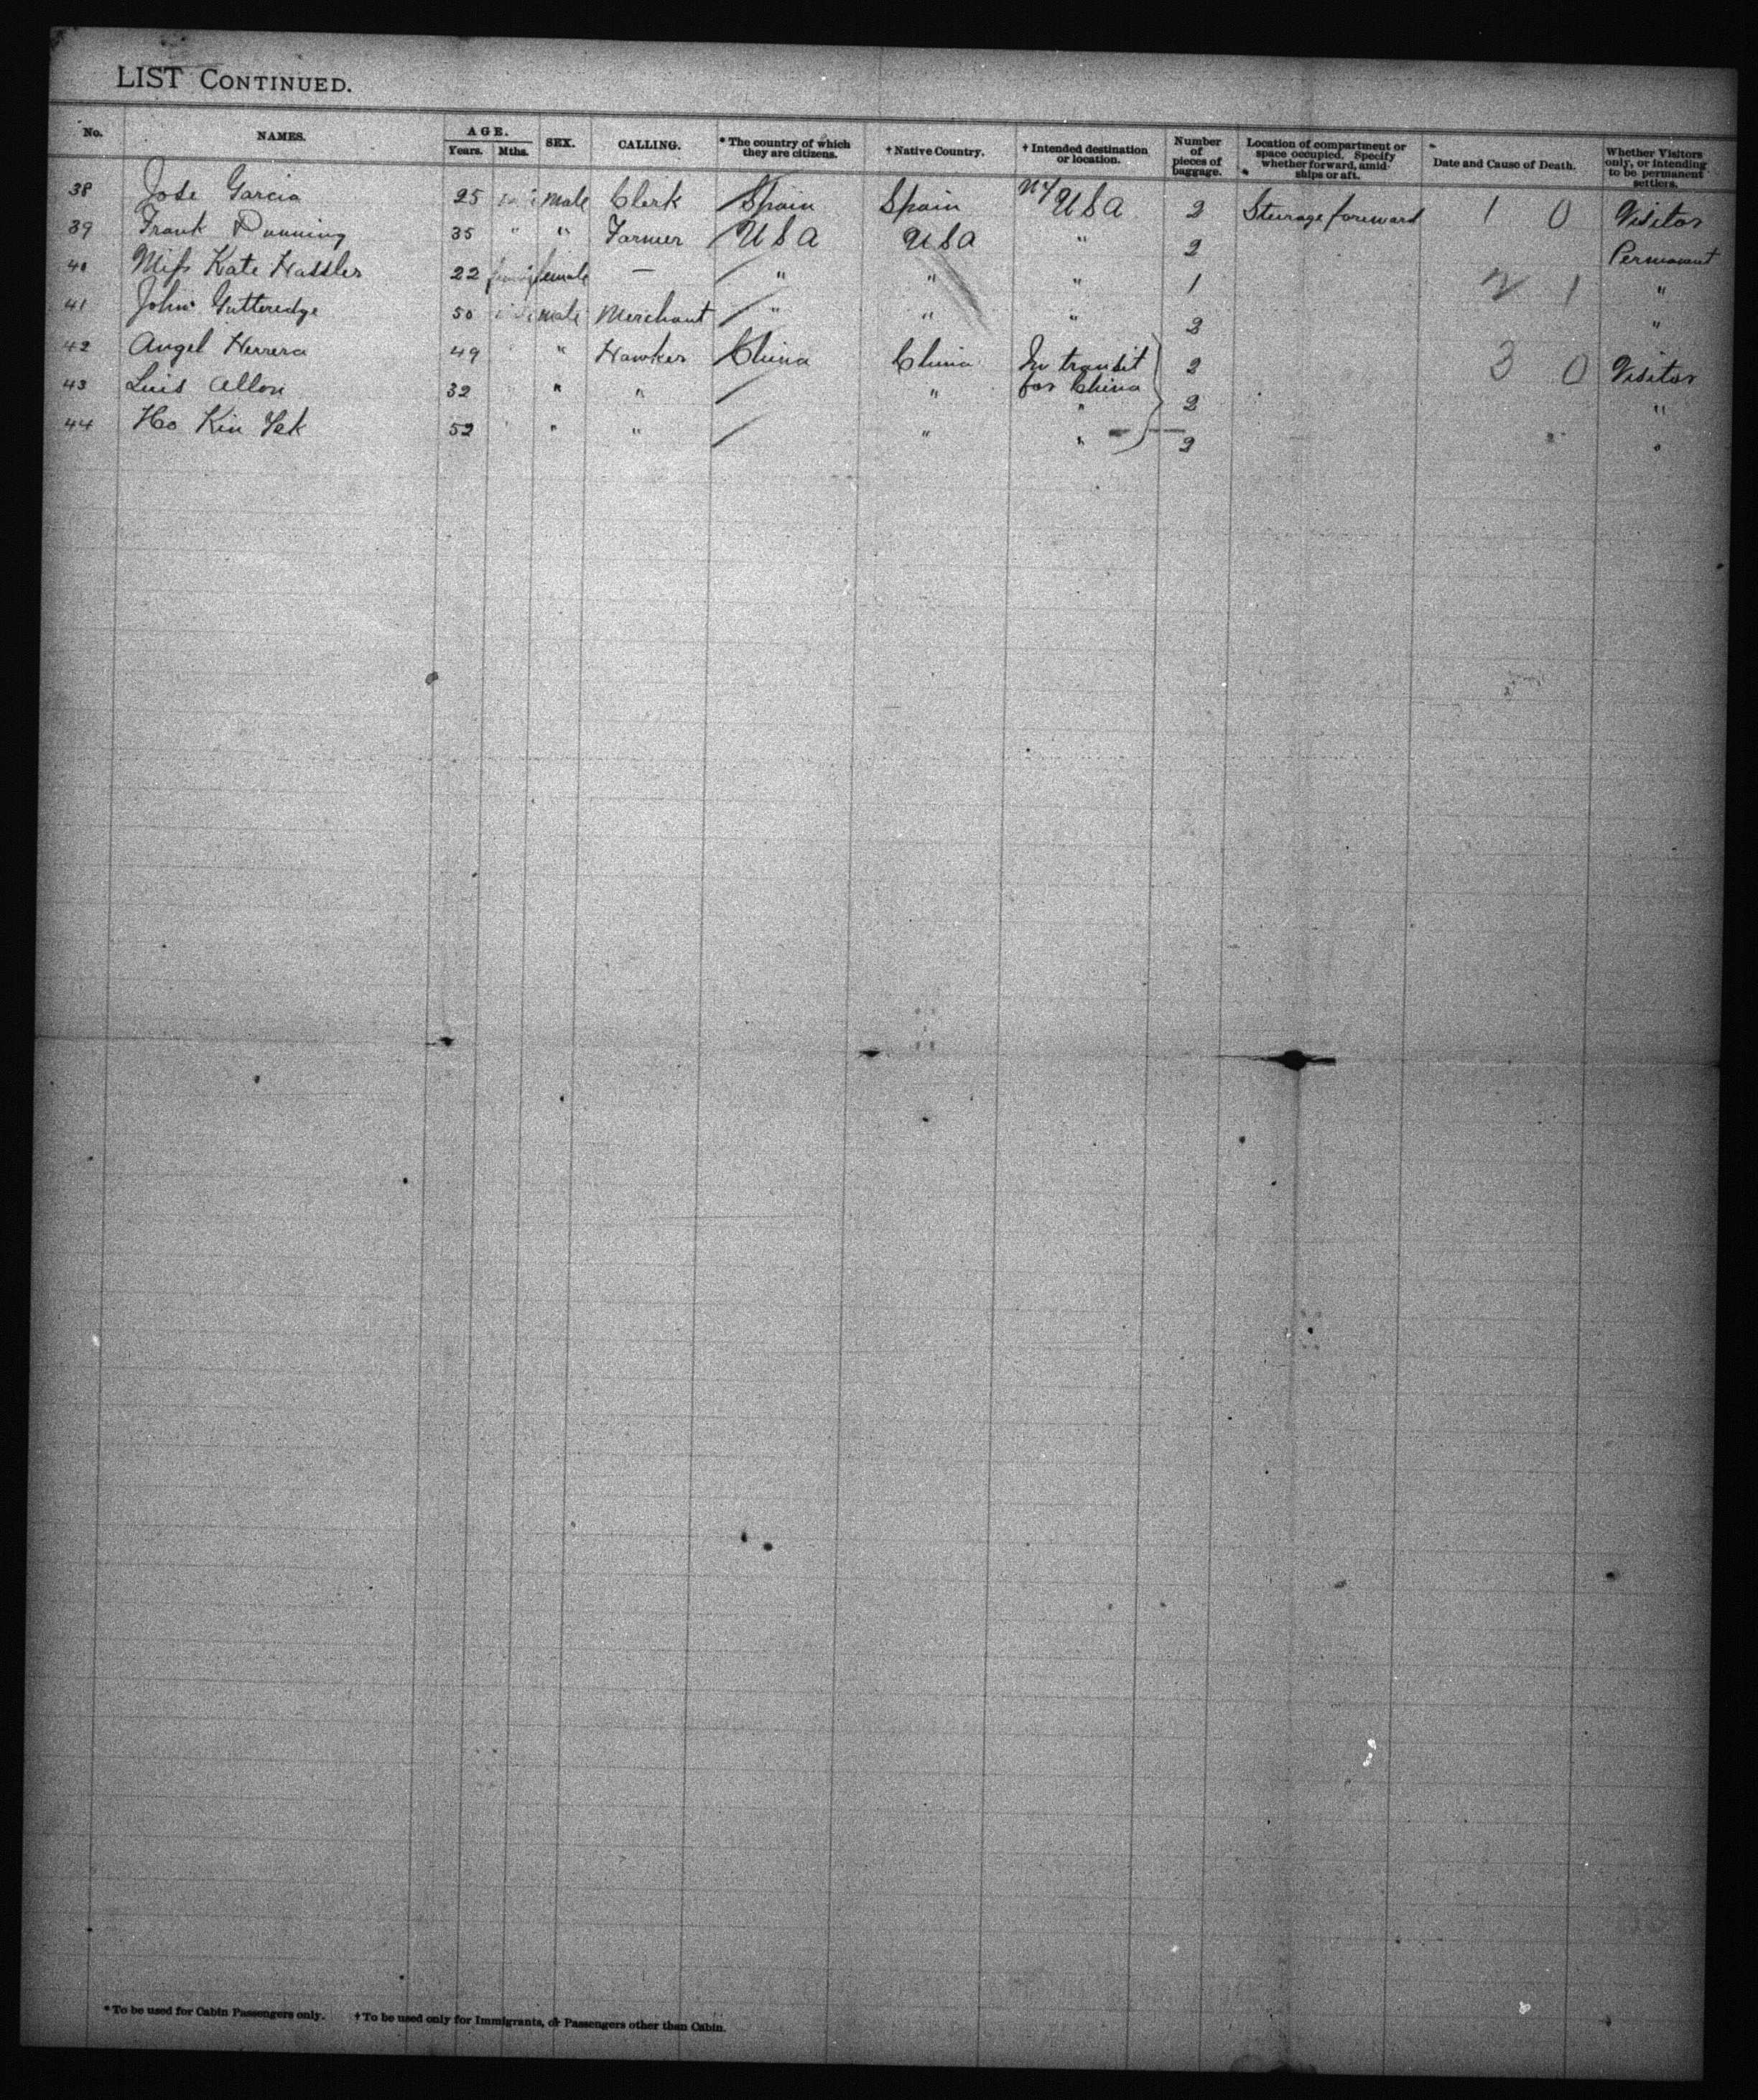 LIST CONTINUED.
No. NAMES. AGE. Years. Mths. SEX. CALLING. * The country of which they are citizens. † Native Country. † Intended destination or location. Number of pieces of baggage. Location of compartment or space occupied. Specify whether forward, amidships or aft. Date and Cause of Death. Whether Visitors only, or intending to be permanent settlers.
38 Jose Garcia 25 male Clerk Spain Spain NY USA 2 Steerage foreward 1 0 Visitor
39 Frank Dunning 35 " " Farmer USA USA " 2 Permanent
40 Miss Kate Hassler 22 female — " " " 1 2 1 "
41 John Gutteredge 50 male Merchant " " " 2 "
42 Angel Herrera 49 " Hawker China China In transit for China 2 3 0 Visitor
43 Luis Allon 32 " " " " 2 "
44 Ho Kin Yek 52 " " " " 2 "
* To be used for Cabin Passengers only. † To be used only for Immigrants, or Passengers other than Cabin.